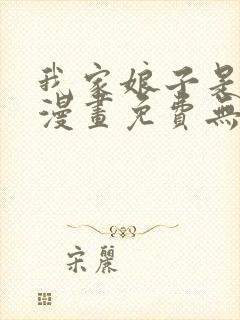 我家娘子是
漫畫免費無
宋麗